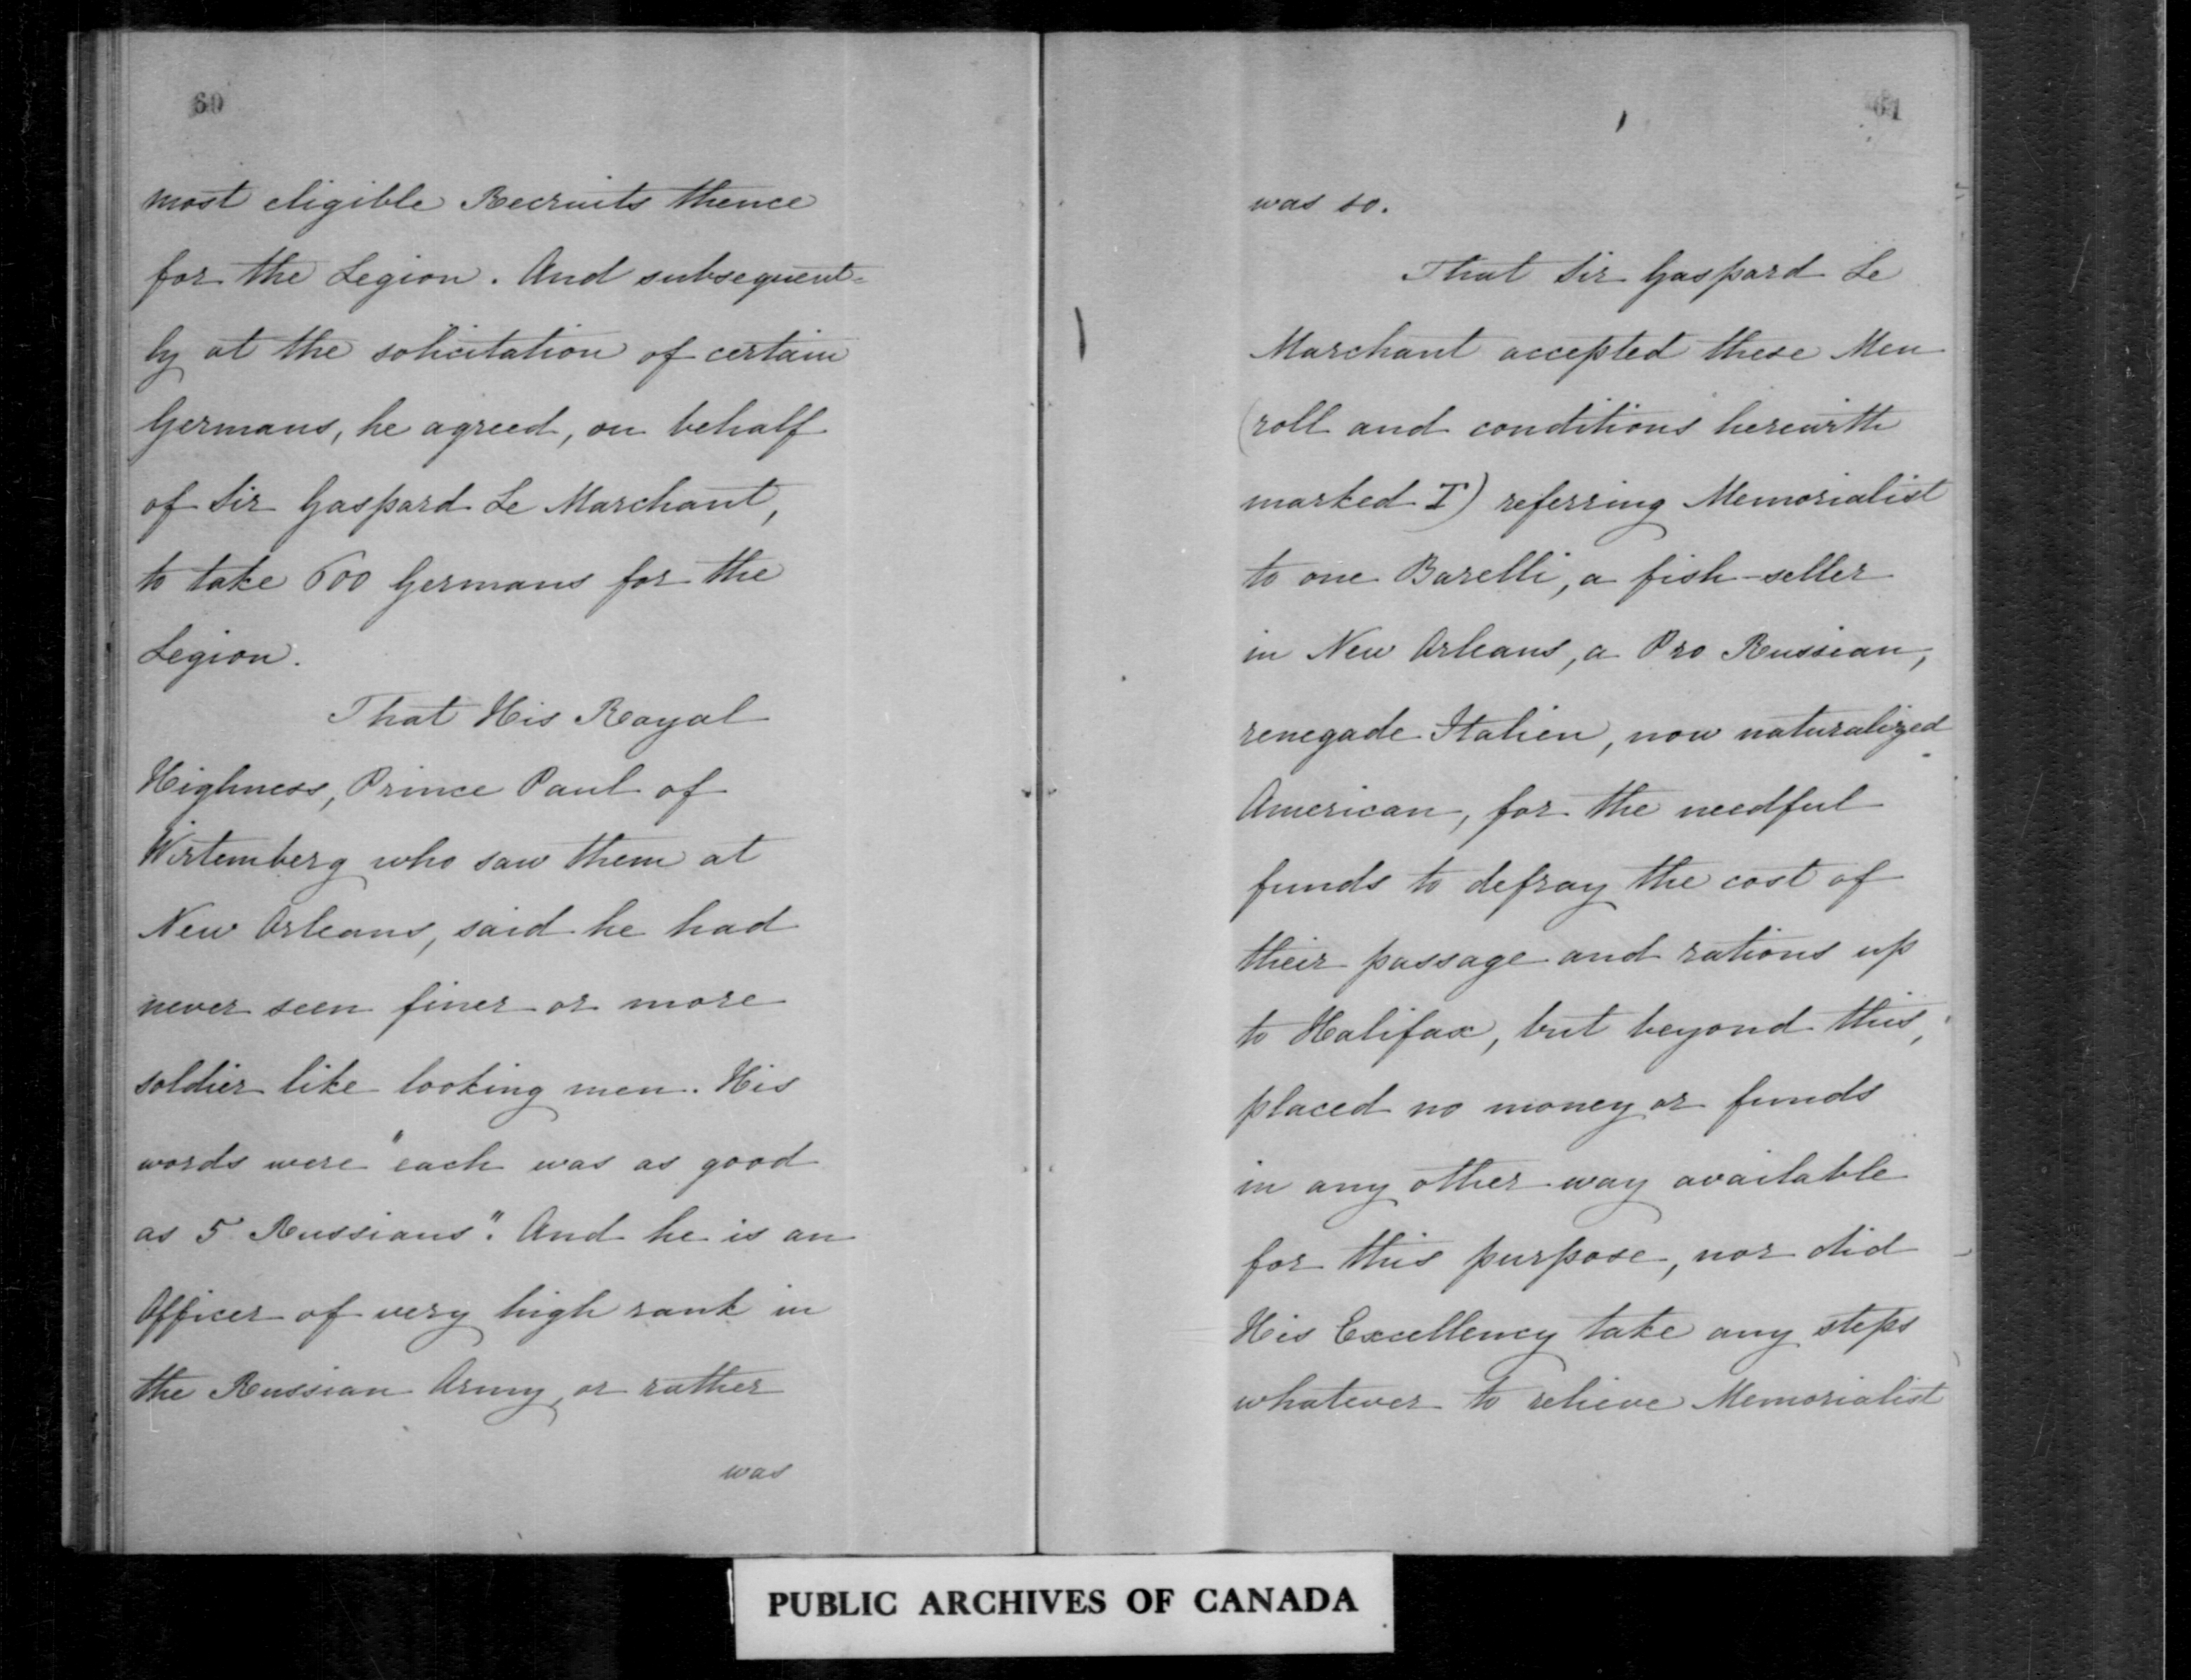 60
most eligible Recruits thence
for the Legion. And subsequent-
ly at the solicitation of certain
Germans, he agreed, on behalf
of Sir Gaspard Le Marchant,
to take 600 Germans for the
Legion.
That His Royal
Highness, Prince Paul of
Wirtemberg who saw them at
New Orleans, said he had
never seen finer or more
soldier like looking men. His
words were "each was as good
as 5 Russians". And he is an
Officer of very high rank in
the Russian Army, or rather
was
61
was so.
That Sir Gaspard Le
Marchant accepted these Men
(roll and conditions herewith
marked I) referring Memorialist
to one Barelli, a fish-seller
in New Orleans, a Pro Russian,
renegade Italien, now naturalized
American, for the needful
funds to defray the cost of
their passage and rations up
to Halifax, but beyond this,
placed no money or funds
in any other way available
for this purpose, nor did
His Excellency take any steps
whatever to relieve Memorialist
PUBLIC ARCHIVES OF CANADA